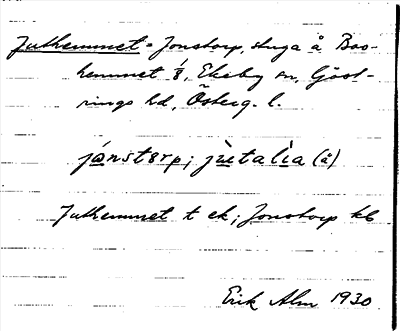 Juthemmet = Jonstorp, stuga å Bos-
hemmet 1/8, Ekeby sn, Göst-
rings hd, Österg. l.
jónstɜrp; jùtalìa (å)
Juthemmet t ek; Jonstorp kb
Erik Alm 1930